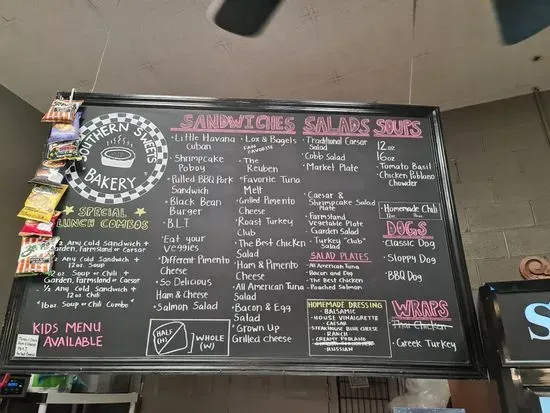 SOUTHERN SWEETS
BAKERY
SPECIAL
LUNCH COMBOS
1/2 Any Cold Sandwich +
Garden, Farmstand or Caesar
1/2 Any Cold Sandwich +
12oz. Soup
12 oz. Soup or Chili +
Garden, Farmstand or Caesar
1/2 Any Cold Sandwich +
12oz. Chili
"16oz. Soup or Chili Combo"
KIDS MENU
AVAILABLE
SANDWICHES
• Little Havana
Cuban
• Shrimpcake
Poboy
• Pulled BBQ Pork
Sandwich
• Black Bean
Burger
• B.L.T
• Eat your
veggies
• Different Pimento
Cheese
• So Delicious
Ham & Cheese
• Salmon Salad
HALF
(H)
WHOLE
(W)
• Lox & Bagels
FAN FAVORITE
• The
Reuben
• Favorite Tuna
Melt
• Grilled Pimento
Cheese
• Roast Turkey
Club
• The Best Chicken
Salad
• Ham & Pimento
Cheese
• All American Tuna
Salad
• Bacon & Egg
Salad
• Grown Up
Grilled Cheese
SALADS
• Traditional Caesar
Salad
• Cobb Salad
• Market Plate
• Caesar &
Shrimpcake Salad
Plate
• Farmstand
Vegetable Plate
• Garden Salad
• Turkey "Club"
Salad
SALAD PLATES
• All American Tuna
• Bacon and Egg
• The Best Chicken
• Poached Salmon
HOMEMADE DRESSING
- BALSAMIC
- HOUSE VINAIGRETTE
- CAESAR
- STEAKHOUSE BLUE CHEESE
- RANCH
- RUSSIAN
SOUPS
12oz
16oz
• Tomato Basil
• Chicken Poblano
Chowder
• Homemade Chili
DOGS
• Classic Dog
• Sloppy Dog
• BBQ Dog
WRAPS
• Thai Chicken
• Greek Turkey
S